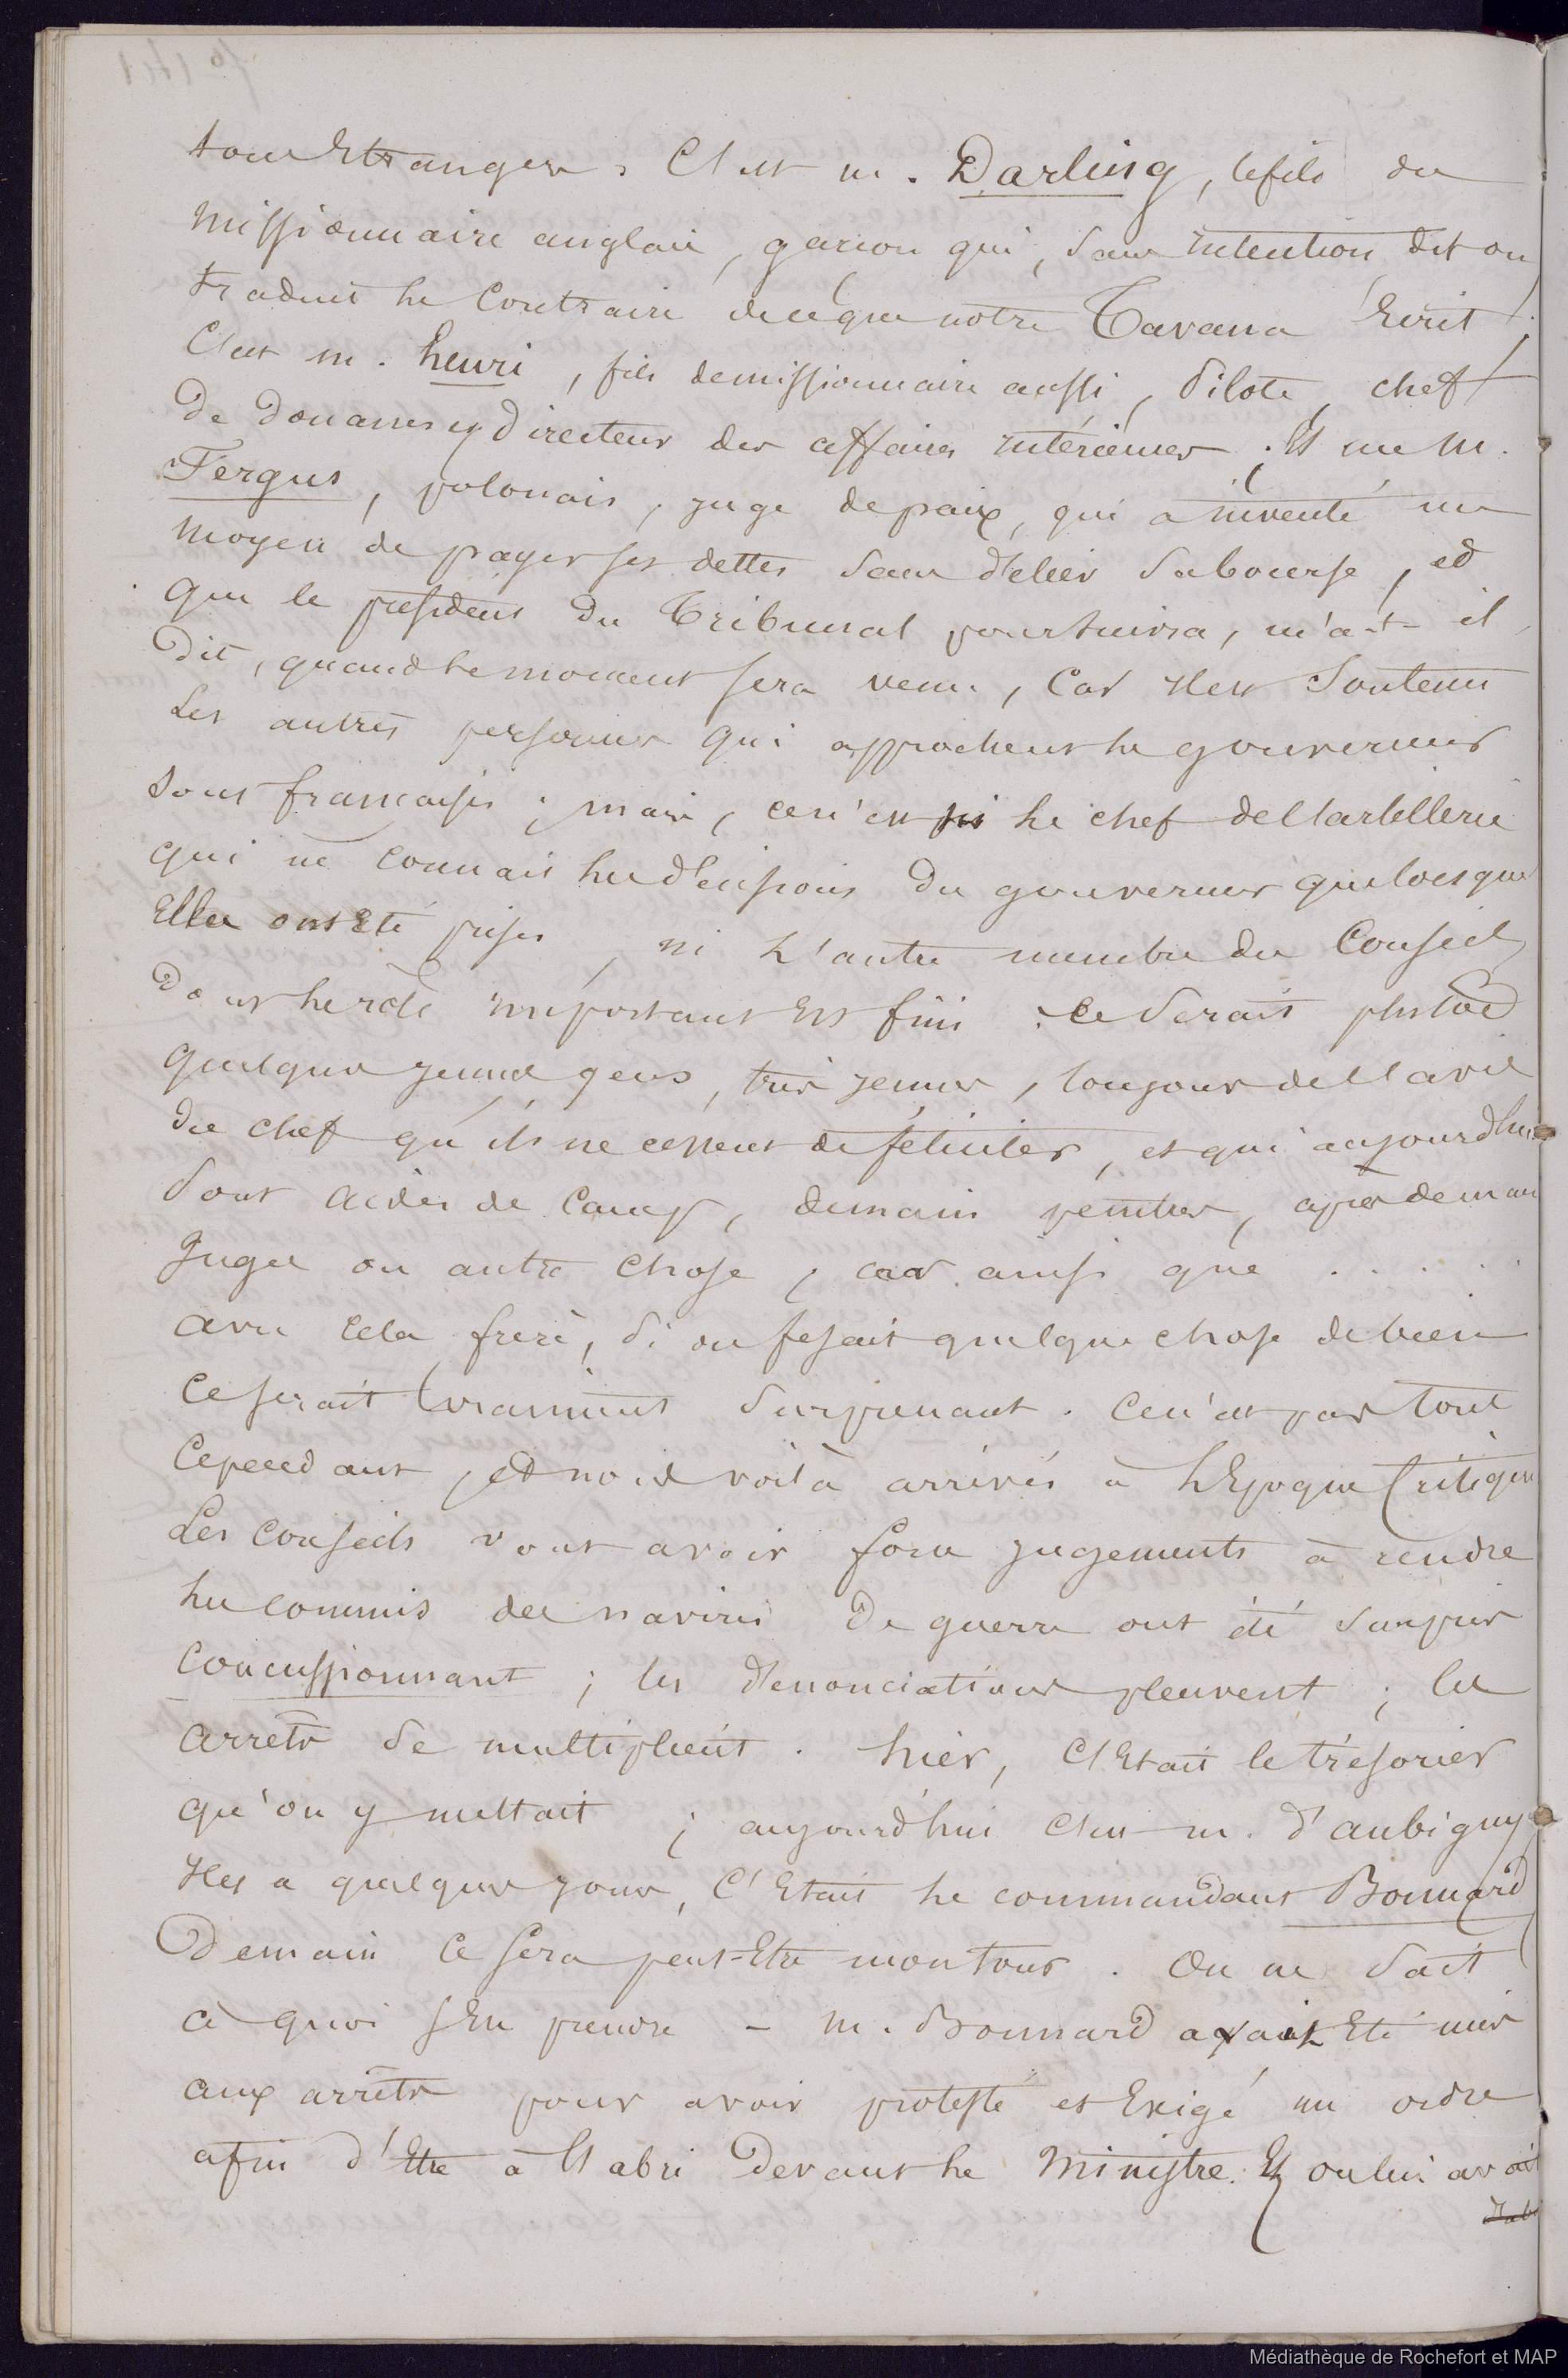 tous Etrangers. C'est m. Darling, le fils du
missionnaire anglais, garçon qui, sans intention dit on
traduit le contraire de ce que notre Tavana Ecrit !
C'est m. henri, fils de missionnaire aussi, Pilote, chef
De Douanes et Directeur des affaires intérieures. Et un m.
Fergus, polonais, juge de paix, qui a inventé un
moyen de payer ses dettes sans délier sa bourse, et
que le président du Tribunal poursuivra, m'a-t-il
Dit, quand le moment sera venu, Car il est Soutenu
Les autres personnes qui approchent le gouverneur
sont françaises ; mais, ce n'est ni le chef de l'artillerie
qui ne connait les décisions Du gouverneur que lorsque
Elles ont Eté prises, ni L'autre membre du Conseil
Dont le rôle important Est fini. Ce serait plutôt
quelques jeunes gens, très jeunes, toujours de l'avis
du chef qu'ils ne cessent de féliciter, et qui aujourd'hui
sont aides de Camp, demain peintres, après demain
juges ou autre chose, car ainsi que . . . . .
avec cela frère, si on fesait quelque chose de bien
ce serait vraiment surprenant. Ce n'est pas tout
Cependant, et nous voilà arrivés à L'Epoque Critique
Les Conseils vont avoir force jugements à rendre
les commis des navires De guerre ont été surpris
concussionnant ; les dénonciations pleuvent ; les
arrêts se multiplient. hier, C'Etait le trésorier
qu'on y mettait ; aujourd'hui C'est m. d'aubigny
Il y a quelques jours, C'Etait le commandant Bonnard
Demain Ce sera peut-Etre mon tour. On ne sait
à quoi s'En prendre - m. Bonnard avait Eté mis
aux arrêts pour avoir protesté et Exigé un ordre
afin d'Etre à l'abri Devant le Ministre. Et on lui avait